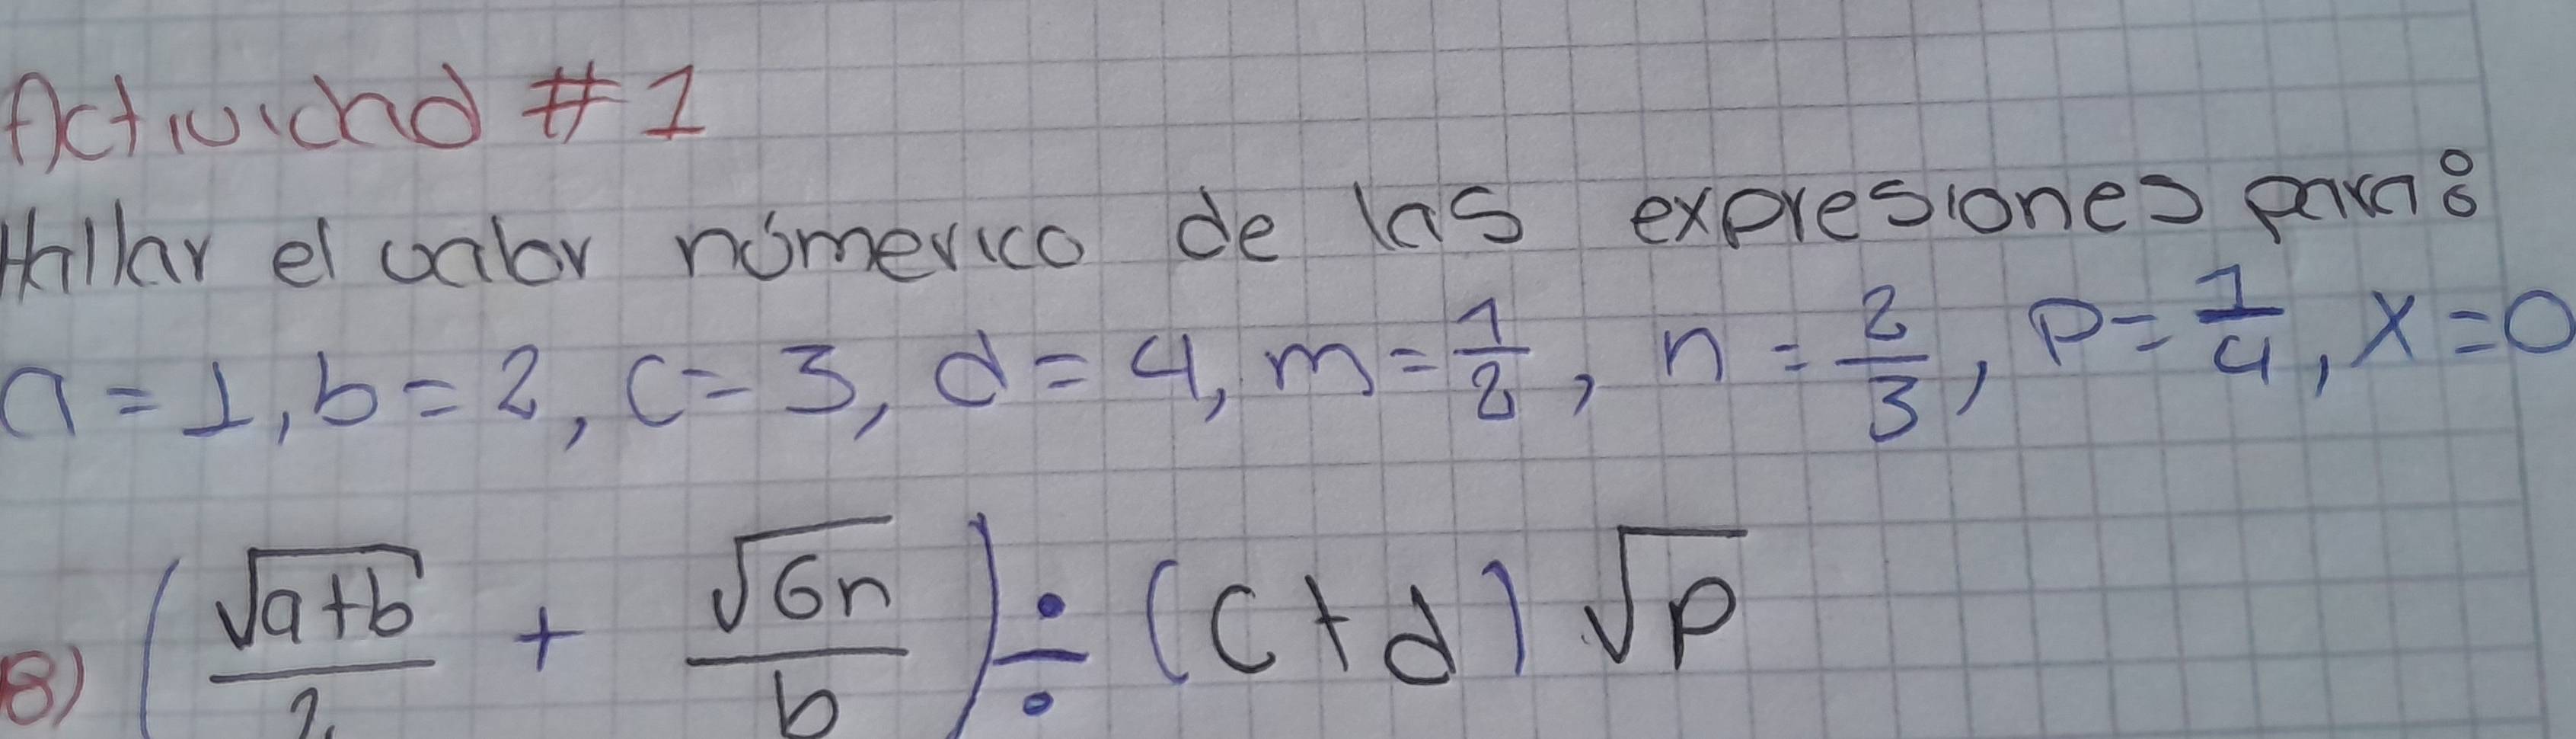 Actividad #1
Hallar el valor númerico de las expresiones para:
a=1, b=2, c=3, d=4, m=1/2, n=2/3, p=1/4, x=0
18) (√(a+b)/2 + √(6n)/b) ÷ (c+d) √p